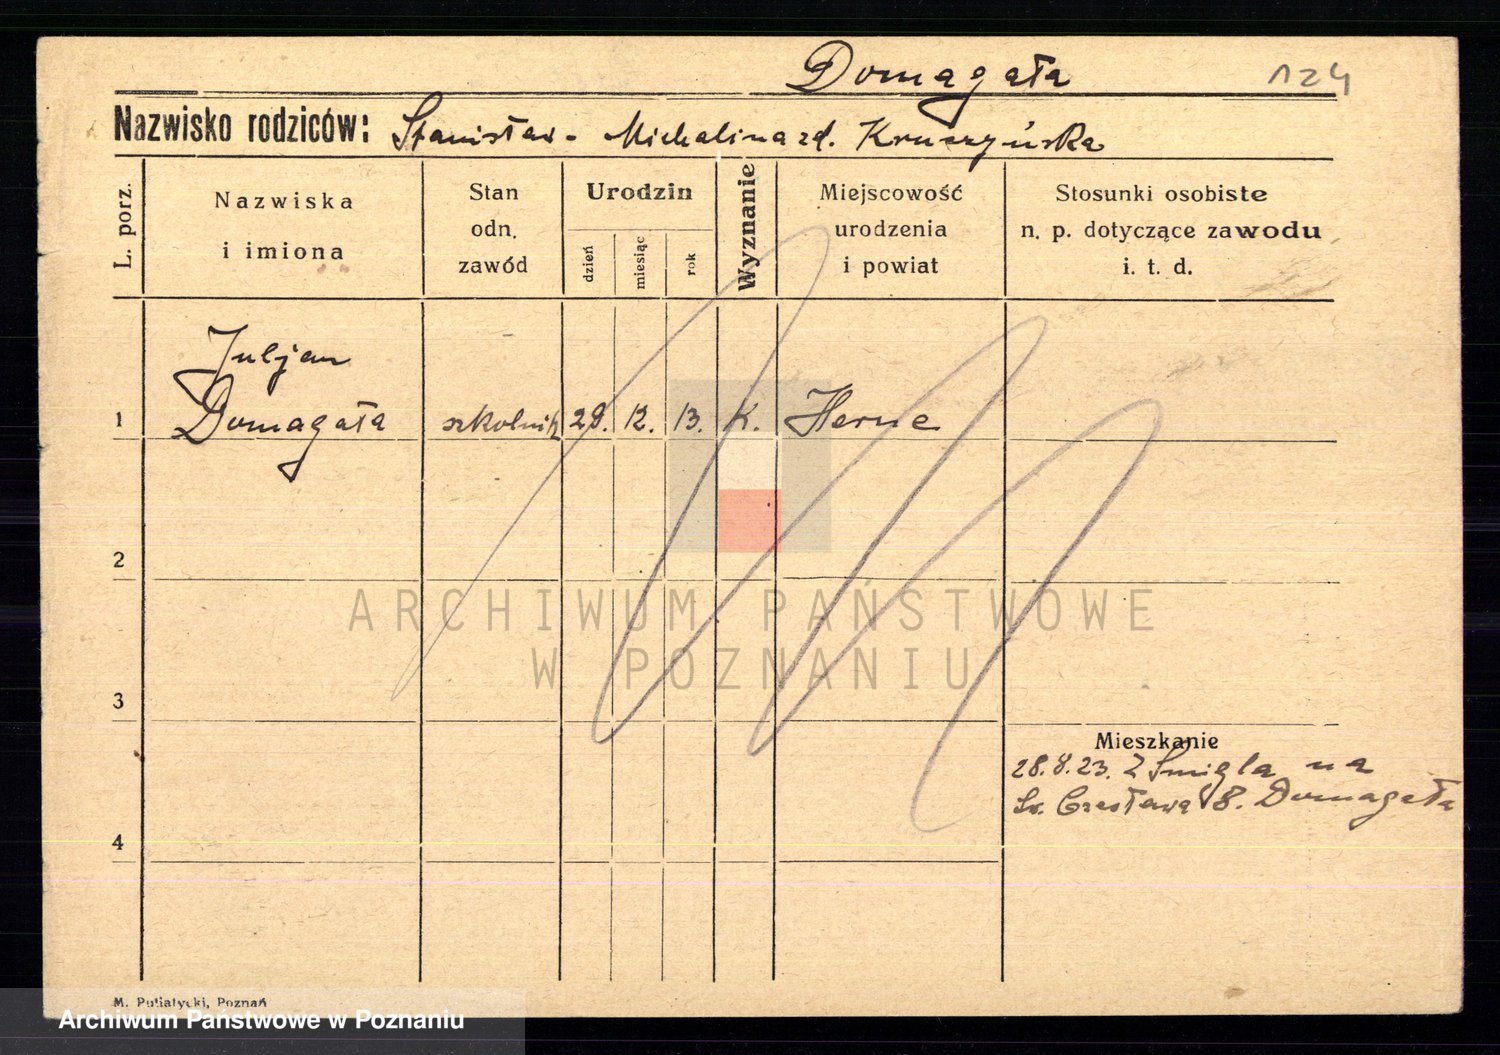 Domagała 124
Nazwisko rodziców: Stanisław - Michalina zd. Kruczyńska
L. porz.
Nazwiska
i imiona
Stan
odn.
zawód
Urodzin
dzień
miesiąc
rok
Wyznanie
Miejscowość
urodzenia
i powiat
Stosunki osobiste
n. p. dotyczące zawodu
i. t. d.
Juljan
1 Domagała szkolnik 29. 12. 13. K. Herne
2
3
4
Mieszkanie
28.8.23. z Śmigla na
Św. Czesława 8. Domagała
ARCHIWUM PAŃSTWOWE
W POZNANIU
M. Putiatycki, Poznań
Archiwum Państwowe w Poznaniu